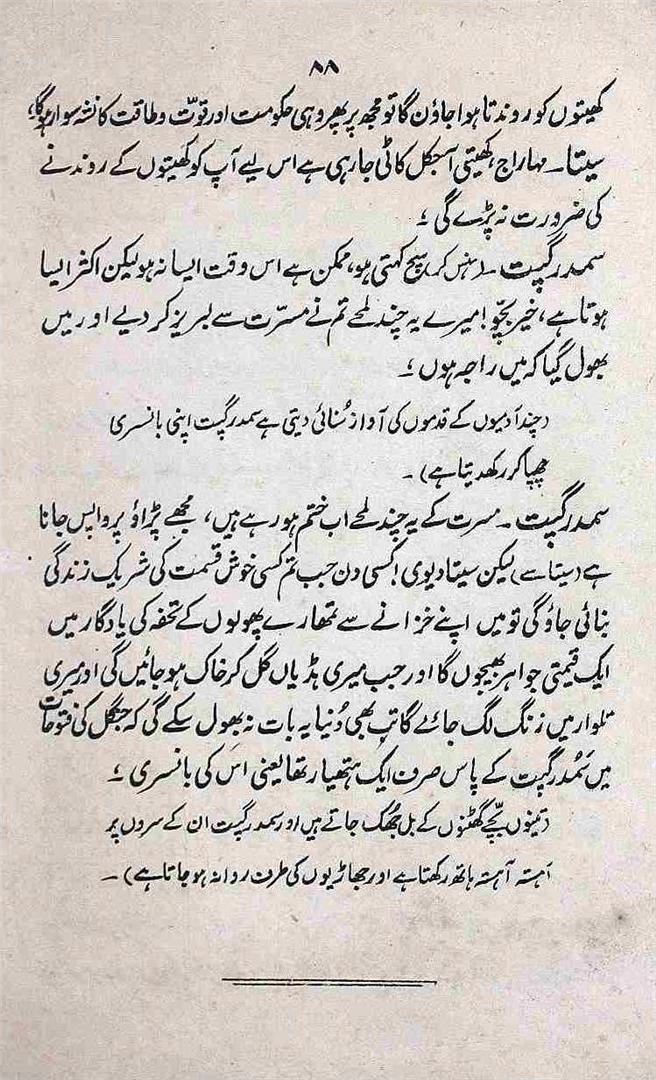 ۸۸
کھیتوں کو روندتا ہوا جاؤں گا تو مجھ پر پھر وہی حکومت اور قوّت و طاقت کا نشہ سوار ہوگا،
سیتا۔ مہاراج، کھیتی آجکل کاٹی جارہی ہے اس لیے آپ کو کھیتوں کے روندنے
کی ضرورت نہ پڑے گی ؛
سمدر گپت ۔ (ہنس کر) سچ کہتی ہو، ممکن ہے اس وقت ایسا نہ ہو لیکن اکثر ایسا
ہوتا ہے، خیر بچّو! میرے یہ چند لمحے تم نے مسرّت سے لبریز کر دیے اور میں
بھول گیا کہ میں راجہ ہوں ؛
(چند آدمیوں کے قدموں کی آواز سُنائی دیتی ہے سمدر گپت اپنی بانسری
چھپا کر رکھدیتا ہے) ۔
سمدر گپت ۔ مسرت کے یہ چند لمحے اب ختم ہو رہے ہیں، مجھے پڑاؤ پر واپس جانا
ہے (سیتا سے) لیکن سیتا دیوی! کسی دن جب تم کسی خوش قسمت کی شریک زندگی
بنائی جاؤ گی تو میں اپنے خزانے سے تمھارے پھولوں کے تحفہ کی یادگار میں
ایک قیمتی جواہر بھیجوں گا اور جب میری ہڈیاں گل کر خاک ہو جائیں گی اور میری
تلوار میں زنگ لگ جائے گا تب بھی دُنیا یہ بات نہ بھول سکے گی کہ جنگل کی فتوحات
میں سَمُدر گپت کے پاس صرف ایک ہتھیار تھا یعنی اس کی بانسری ؛
(تینوں بچّے گھٹنوں کے بل جھُک جاتے ہیں اور سمدر گپت ان کے سروں پر
آہستہ آہستہ ہاتھ رکھتا ہے اور جھاڑیوں کی طرف روانہ ہو جاتا ہے) ۔